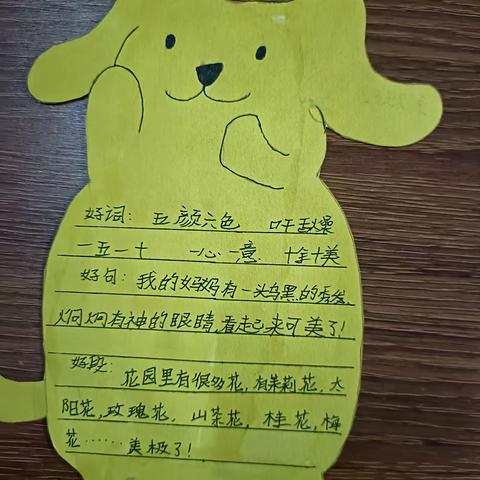 好词： 五颜六色 口干舌燥
一五一十 一心一意 十全十美
好句：我的妈妈有一头乌黑的秀发,
炯炯有神的眼睛,看起来可美了！
好段： 花园里有很多花,有茉莉花,太
阳花,玫瑰花, 山茶花, 桂花,梅
花……美极了！